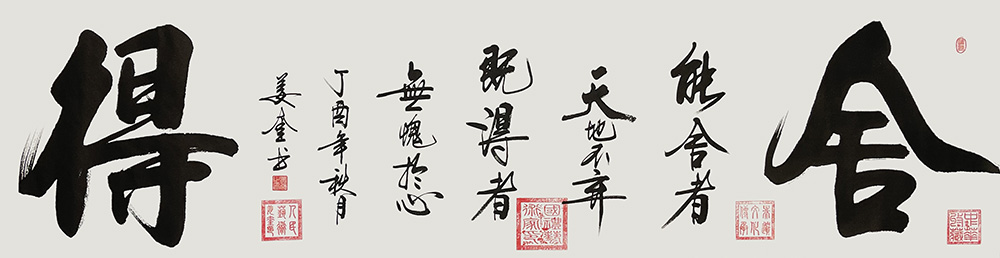 舍
能舍者
天地不弃
既得者
無愧於心
得
丁酉年秋月
姜奎书